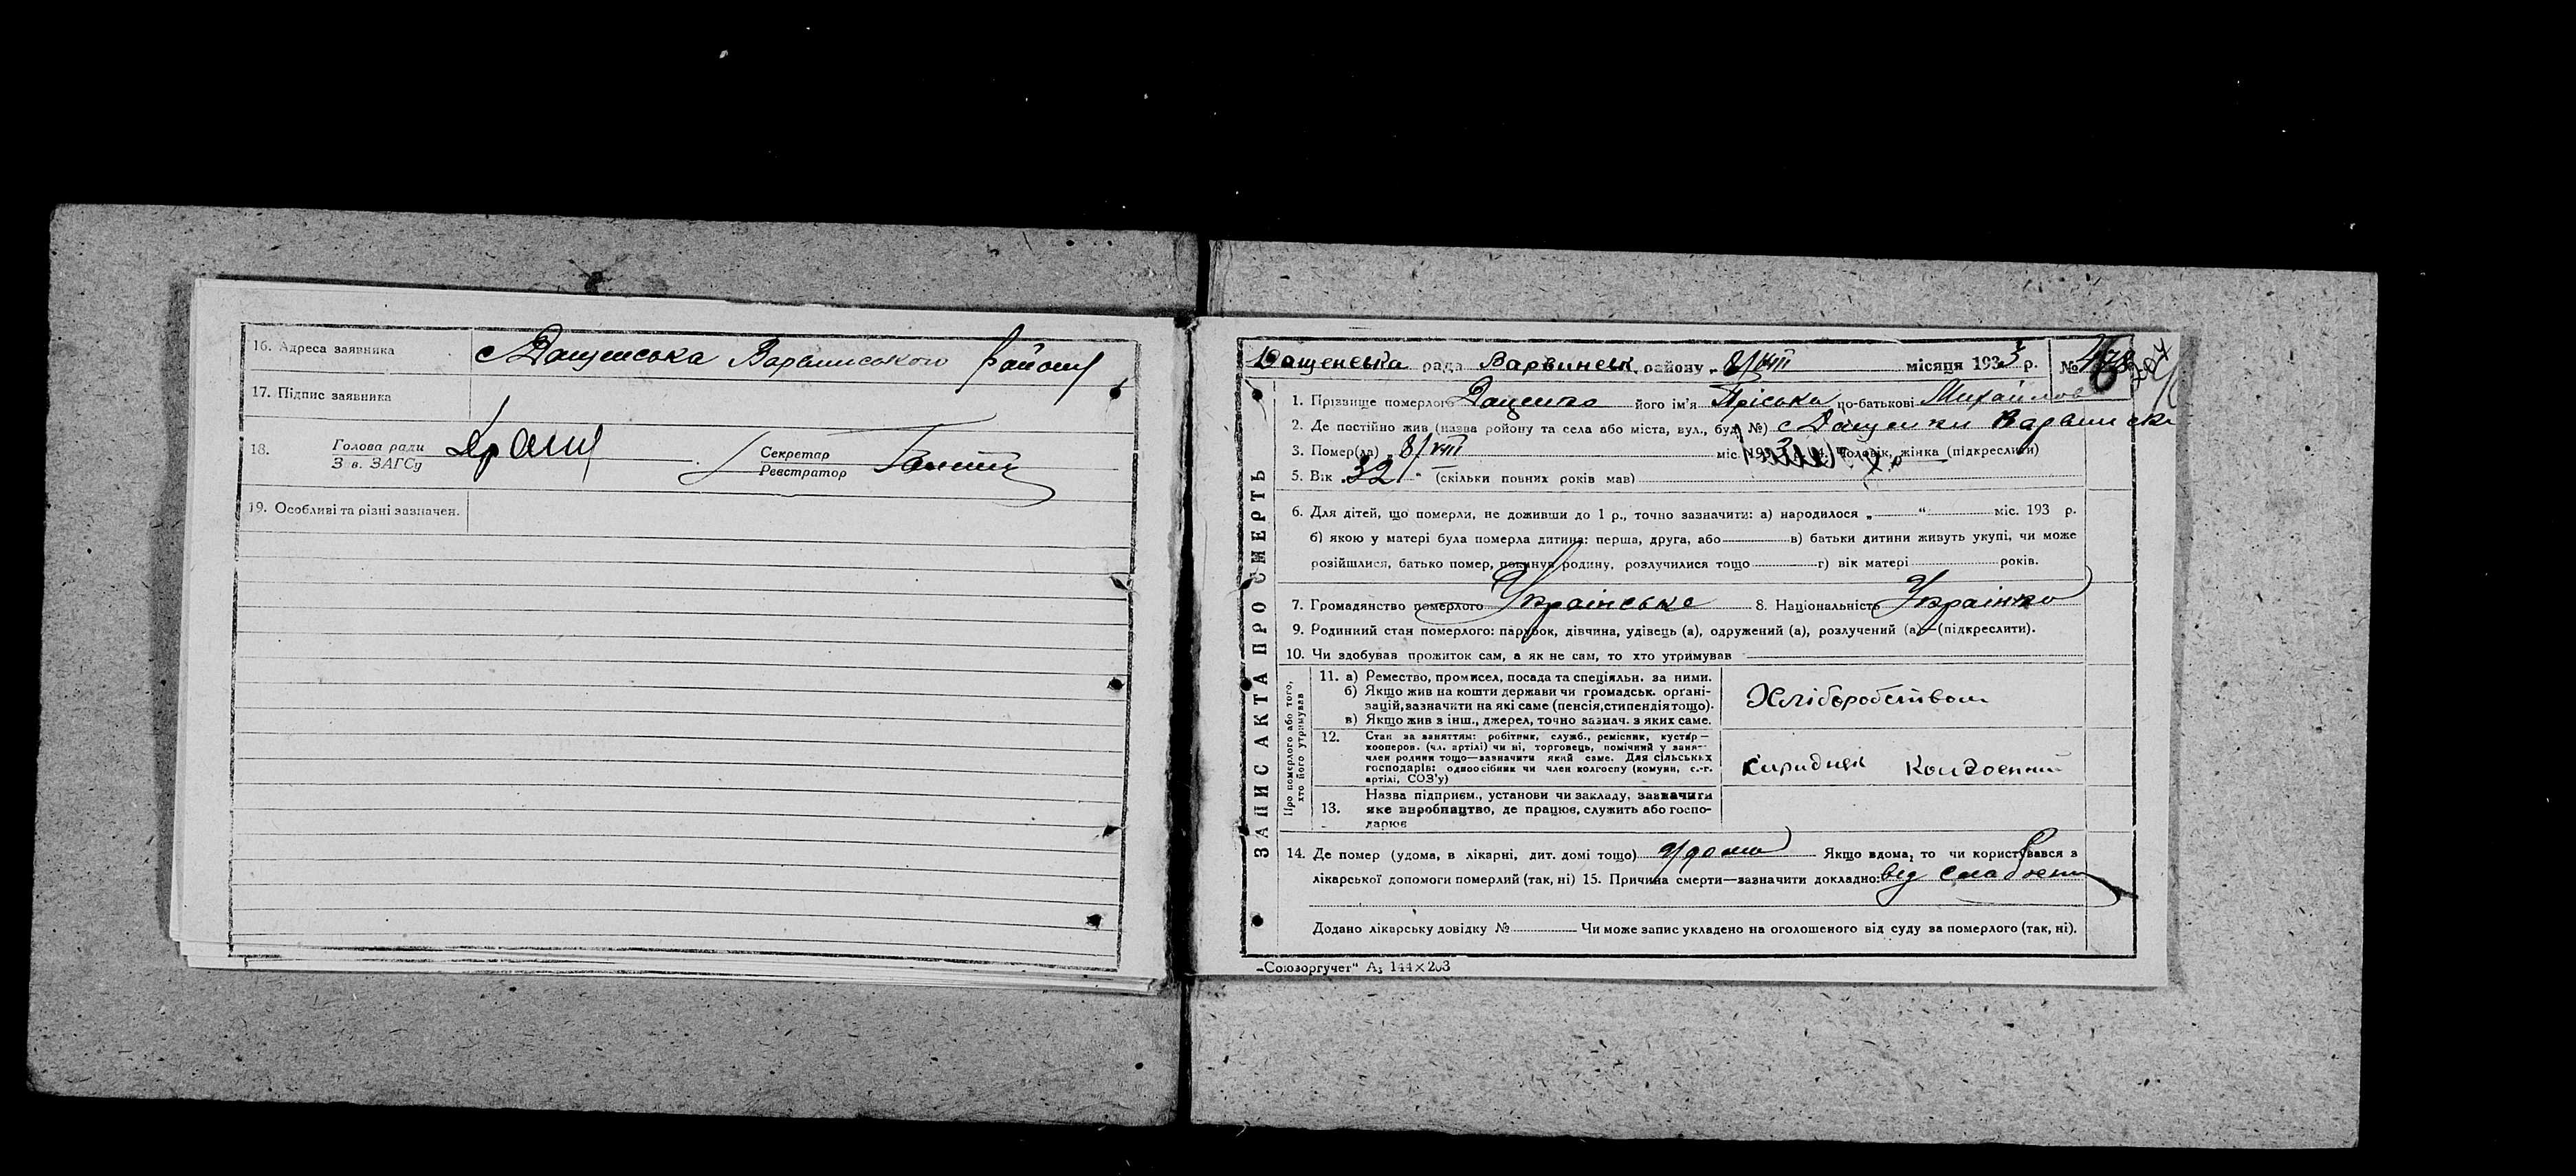 16. Адреса заявника с Дащенська Варвинського району
17. Підпис заявника
18. Голова ради
Зав. ЗАГСу
Секретар
Реєстратор
19. Особливі та різні зазначен.
Дащенська рада Варвинськ. району „ 8/VIII місяця 1933 р. №
ЗАПИС АКТА ПРО СМЕРТЬ
1. Прізвище померлого Даценко його ім'я Пріська по-батькові Михайлов
2. Де постійно жив (назва району та села або міста, вул., буд. №) с Дащенки Варвинськ
3. Помер(ла) „ 8/VIII міс. 1933 чоловік, жінка (підкреслити)
5. Вік 32 (скільки повних років мав)
6. Для дітей, що померли, не доживши до 1 р., точно зазначити: а) народилося „ “ міс. 193 р.
б) якою у матері була померла дитина: перша, друга, або в) батьки дитини живуть укупі, чи може
розійшлися, батько помер, покинув родину, розлучилися тощо г) вік матері років.
7. Громадянство померлого Українське 8. Національність Українка
9. Родинний стан померлого: парубок, дівчина, удівець (а), одружений (а), розлучений (а)—(підкреслити).
10. Чи здобував прожиток сам, а як не сам, то хто утримував
Про померлого або того,
хто його утримував
11. а) Ремество, промисел, посада та спеціяльн. за ними.
б) Якщо жив на кошти держави чи громадськ. органі-
зацій, зазначити на які саме (пенсія, стипендія тощо).
в) Якщо жив з інш., джерел, точно зазнач. з яких саме.
Хліборобством
12. Стан за заняттям: робітник, служб., ремісник, кустар—
кооперов. (чл. артілі) чи ні, торговець, помічний у заня-
член родини тощо—зазначити який саме. Для сільських
господарів: одноосібник чи член колгоспу (комуни, с.-г.
артілі, СОЗ'у)
13. Назва підприєм., установи чи закладу, зазначити
яке виробництво, де працює, служить або госпо-
дарює
14. Де помер (удома, в лікарні, дит. домі тощо) удома Якщо вдома, то чи користувався з
лікарської допомоги померлий (так, ні) 15. Причина смерти—зазначити докладно: від слабости
Додано лікарську довідку № Чи може запис укладено на оголошеного від суду за померлого (так, ні).
„Союзоргучет“ А₅ 144×203